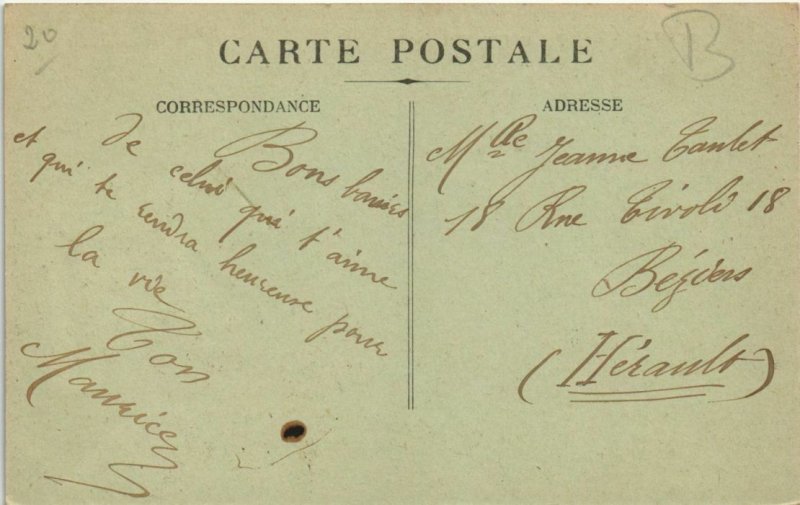 20
B
CARTE POSTALE
CORRESPONDANCE
Bons baisers
de celui qui t'aime
et qui te rendra heureuse pour
la vie
Ton
Maurice
ADRESSE
Mlle Jeanne Taulet
18 Rue Tivoli 18
Béziers
(Hérault)